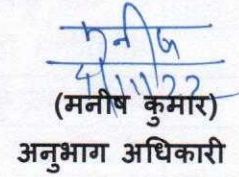 मनीष
4/11/22
(मनीष कुमार)
अनुभाग अधिकारी